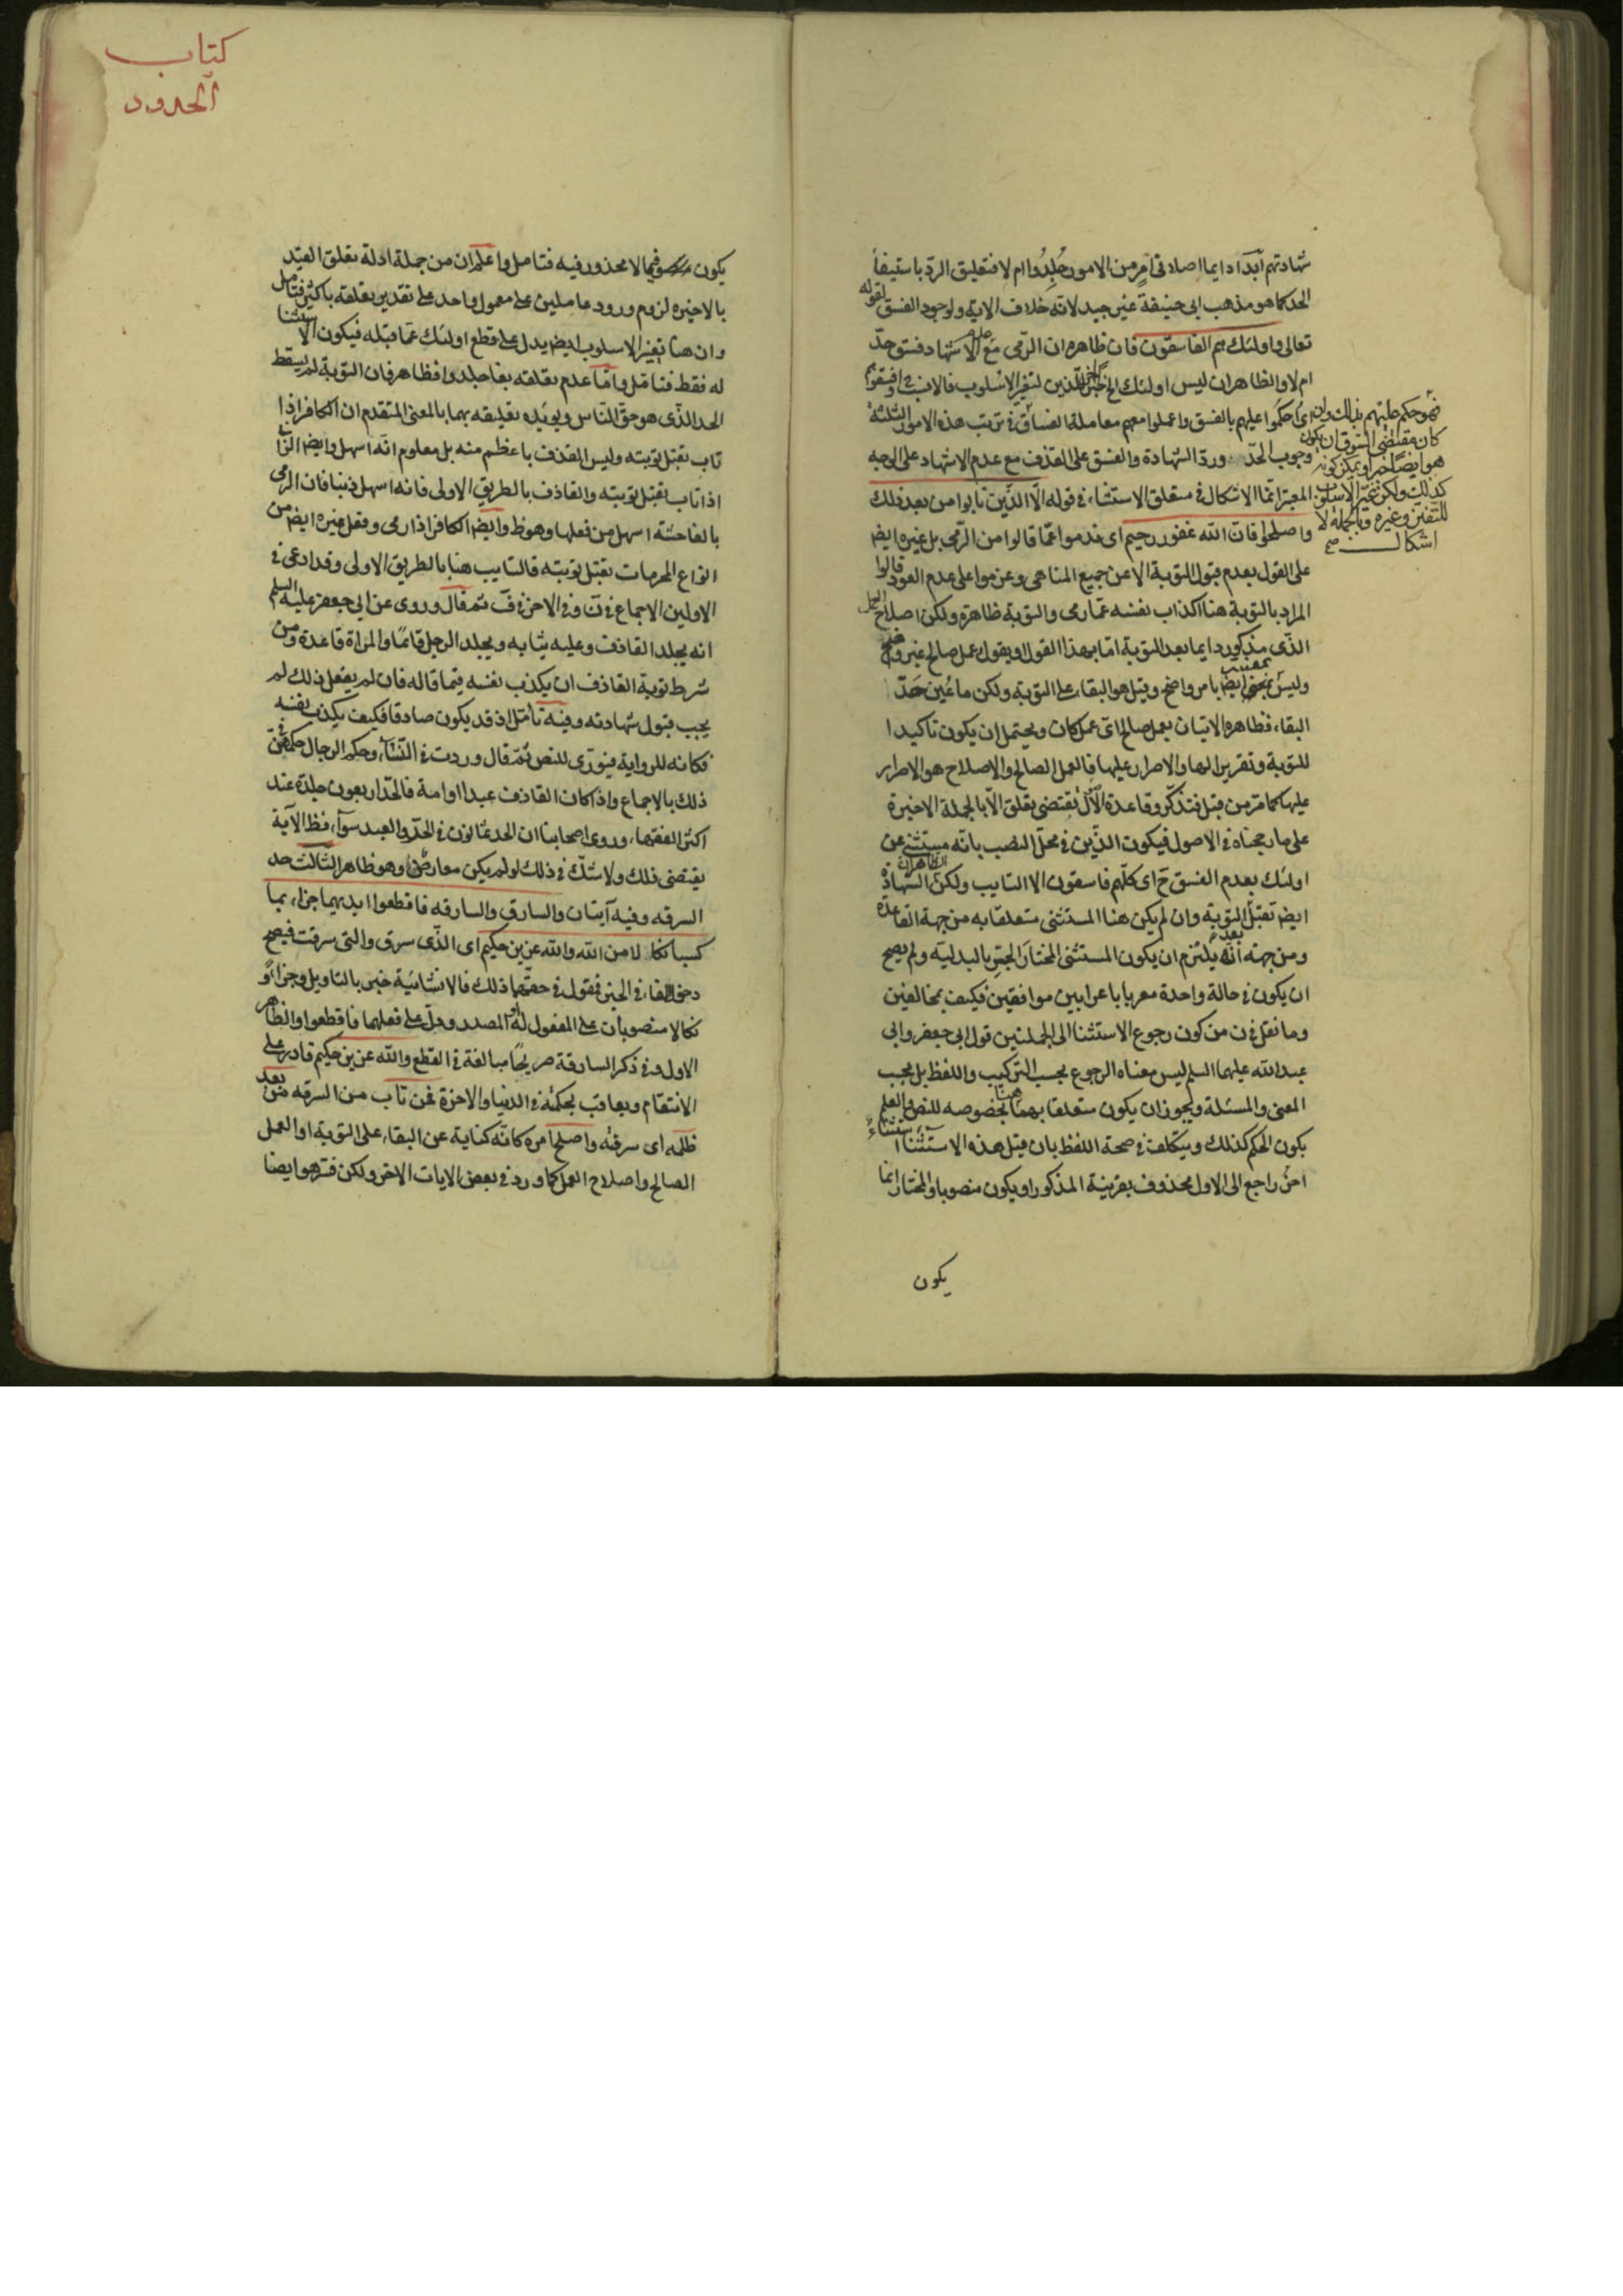 شهادتهم ابدا دايما اصلا في امر من الامور جلدوا ام لا فتعليق الرد باستيفا
الحد كما هو مذهب ابي حنيفة غير جيد لانه خلاف الاية ولوجود الفسق لقوله
تعالى واولئك هم الفاسقون فان ظاهره ان الرمي مع عدم الاشهاد فسق حد
ام لا والظاهر ان ليس اولئك الخ خبر للذين لتغير الاسلوب فالانشا
اي احكموا عليهم بالفسق واعملوا معهم معاملة الفساق في ترتب هذه الامور الثلثة
وجوب الحد ورد الشهادة والفسق على القذف مع عدم الاشهاد على الوجه
المعتبر انما الاشكال في متعلق الاستثناء في قوله الا الذين تابوا من بعد ذلك
واصلحوا فان الله غفور رحيم اي ندموا عما قالوا من الرمي بل غيره ايض
على القول بعدم قبول التوبة الا عن جميع المناهي وعزموا على عدم العود قالوا
المراد بالتوبة هنا اكذاب نفسه عما رمى والتوبة ظاهرة ولكن اصلاح العمل
الذي مذكور دايما بعد التوبة اما بهذا القول او يقول عمل صالح غير
وليس ايض بامر واضح وقيل هو البقاء على التوبة ولكن ما عين حد
البقاء فظاهره الاتيان بعمل صالح اي عمل كان ويحتمل ان يكون تاكيدا
للتوبة وتقريرا لها والاصرار عليها فالعمل الصالح والاصلاح هو الاصرار
عليها كما مر من قبل فتذكر وقاعدة الاول تقتضي تعلق الا بالجملة الاخيرة
على ما رجحناه في الاصول فيكون الذين في محل النصب بانه مستثنى عن
اولئك بعدم الفسق ح اي كلهم فاسقون الا التايب ولكن الظاهر ان الشهادة
ايض تقبل بعد التوبة وان لم يكن هنا المستثنى متعلقا به من جهة القاعدة
ومن جهة انه يلزم ان يكون المستثنى المختار الجر بالبدلية ولم يصح
ان يكون في حالة واحدة معربا باعرابين موافقين فكيف بمخالفين
وما نقل في ن من كون رجوع الاستثنا الى الجملتين قول ابي جعفر وابي
عبد الله عليهما السلم ليس معناه الرجوع بحسب التركيب واللفظ بل بحسب
المعنى والمسئلة ويجوز ان يكون متعلقا بهما هنا بخصوصه للنص والعلم
يكون الحكم كذلك ويتكلف في صحة اللفظ بان قبل هذه الاستثناء استثناء
اخر راجع الى الاول محذوف بقرينة المذكور او يكون منصوبا والمختار انما
فهو حكم عليهم بذلك وان
كان مقتضى السوق ان يكون
هو ايضا خبر او يمكن كونه
كذلك ولكن تغير الاسلوب
للتفنن وغيره وبالجملة لا
اشكال صح
يكون
كتاب
الحدود
يكون فيما لا محذور فيه فتامل واعلم ان من جملة ادلة تعلق القيد
بالاخيرة لزوم ورود عاملين على معمول واحد على تقدير تعلقه باكثر فتامل
وان هنا تغير الاسلوب ايض يدل على قطع اولئك عما قبله فيكون الاستثنا
له فقط فتامل واما عدم تعلقه بفاجلدوا فظاهر فان التوبة لم يسقط
الحد الذي هو حق الناس ويؤيده تعليقه بهما بالمعنى المتقدم ان الكافر اذا
تاب تقبل توبته وليس القذف باعظم منه بل معلوم انه اسهل وايض الزاني
اذا تاب تقبل توبته والقاذف بالطريق الاولى فانه اسهل ذنبا فان الرمي
بالفاحشة اسهل من فعلها وهو ظ وايض الكافر اذا رمى وفعل غيره ايض من
انواع المحرمات تقبل توبته فالتايب هنا بالطريق الاولى وقد ادعى في
الاولين الاجماع في ن وفي الاخر في ف ثم قال وروى عن ابي جعفر عليه السلم
انه يجلد القاذف وعليه ثيابه ويجلد الرجل قائما والمراة قاعدة ومن
شرط توبة القاذف ان يكذب نفسه فيما قاله فان لم يفعل ذلك لم
يجب قبول شهادته وفيه تامل اذ قد يكون صادقا فكيف يكذب نفسه
فكانه للرواية فيوري للنص ثم قال وردت في النساء وحكم الرجال حكمهن في
ذلك بالاجماع واذا كان القاذف عبدا او امة فالحد اربعون جلدة عند
اكثر الفقهاء وروى اصحابنا ان الحد ثمانون في الحر والعبد سواء فظ الآية
يقتضي ذلك ولا شك في ذلك لو لم يكن معارض وهو ظاهر الثالث حد
السرقه وفيه آيتان والسارق والسارقه فاقطعوا ايديهما جزاء بما
كسبا نكالا من الله والله عزيز حكيم اي الذي سرق والتي سرقت فيصح
دخول الفاء في الخبر فمقول في حقهما ذلك فالانشائية خبر بالتاويل وجزاء و
نكالا منصوبان على المفعول له او المصدر ودل على فعلهما فاقطعوا والظاهر
الاول وفي ذكر السارقة صريحا مبالغة في القطع والله عزيز حكيم قادر على
الانتقام ويعاقب بحكمته في الدنيا والاخرة فمن تاب من السرقه من بعد
ظلمه اي سرقته واصلح امره كانه كناية عن البقاء على التوبة او العمل
الصالح واصلاح العمل كما ورد في بعض الايات الاخر ولكن فسر هو ايضا